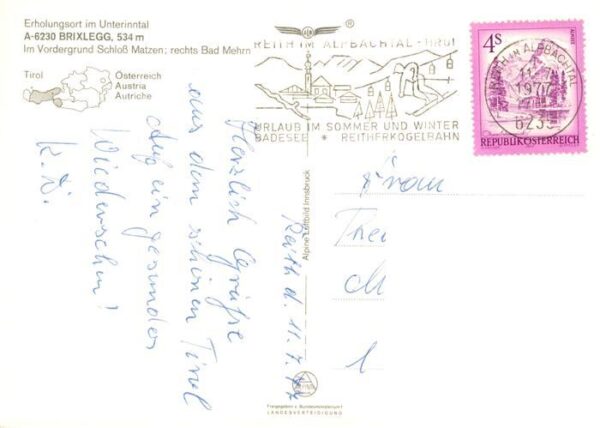 Erholungsort im Unterinntal
A-6230 BRIXLEGG, 534 m
Im Vordergrund Schloß Matzen; rechts Bad Mehrn
Tirol
Österreich
Austria
Autriche
REITH IM ALPBACHTAL - TIROL
URLAUB IM SOMMER UND WINTER
BADESEE * REITHERKOGELBAHN
4S
REITH IM ALPBACHTAL
6235
REPUBLIK ÖSTERREICH
Reith d. 11.7.77
Herzlich Grüße
aus dem schönen Tirol
Auf ein gesundes
Wiedersehen!
Alpine Luftbild Innsbruck
Frau
Freigegeben v. Bundesministerium f.
LANDESVERTEIDIGUNG